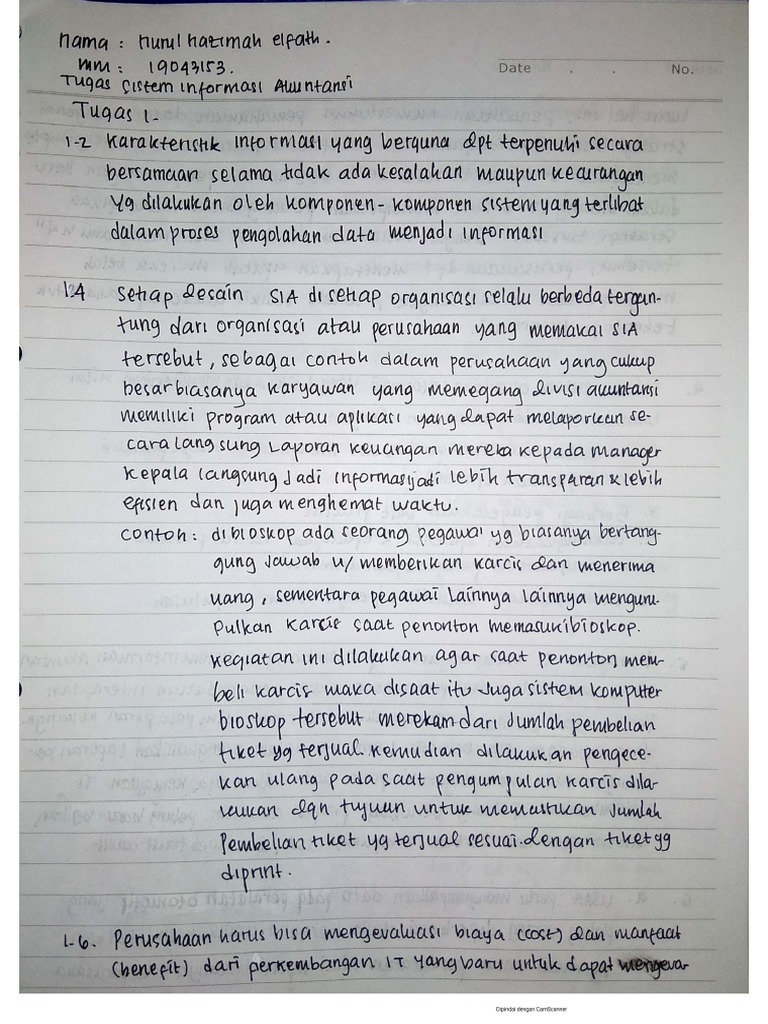 Nama : Nurul Nazimah elfath.
NIM : 19043153.
Date . . No.
Tugas Sistem Informasi Akuntansi
Tugas 1.
1-2 Karakteristik informasi yang berguna dpt terpenuhi secara
bersamaan selama tidak ada kesalahan maupun kecurangan
yg dilakukan oleh komponen-komponen sistem yang terlibat
dalam proses pengolahan data menjadi informasi
1.4 Setiap desain SIA di setiap organisasi selalu berbeda tergan-
tung dari organisasi atau perusahaan yang memakai SIA
tersebut, sebagai contoh dalam perusahaan yang cukup
besar biasanya karyawan yang memegang divisi akuntansi
memiliki program atau aplikasi yang dapat melaporkan se-
cara langsung Laporan keuangan mereka kepada manager
kepala langsung Jadi informasi jadi lebih transparan & lebih
efisien dan juga menghemat waktu.
contoh : di bioskop ada seorang pegawai yg biasanya bertang-
gung jawab u/ memberikan karcis dan menerima
uang, sementara pegawai Lainnya lainnya mengum-
pulkan karcis saat penonton memasuki bioskop.
kegiatan ini dilakukan agar saat penonton mem-
beli karcis maka disaat itu Juga sistem komputer
bioskop tersebut merekam dari Jumlah pembelian
tiket yg terjual. Kemudian dilakukan pengece-
kan ulang pada saat pengumpulan karcis dila-
kukan dgn tujuan untuk memastikan Jumlah
Pembelian tiket yg terjual sesuai dengan tiket yg
diprint.
1-6. Perusahaan harus bisa mengevaluasi biaya (cost) dan manfaat
(benefit) dari perkembangan IT yang baru untuk dapat mengeva-
Dipindai dengan CamScanner